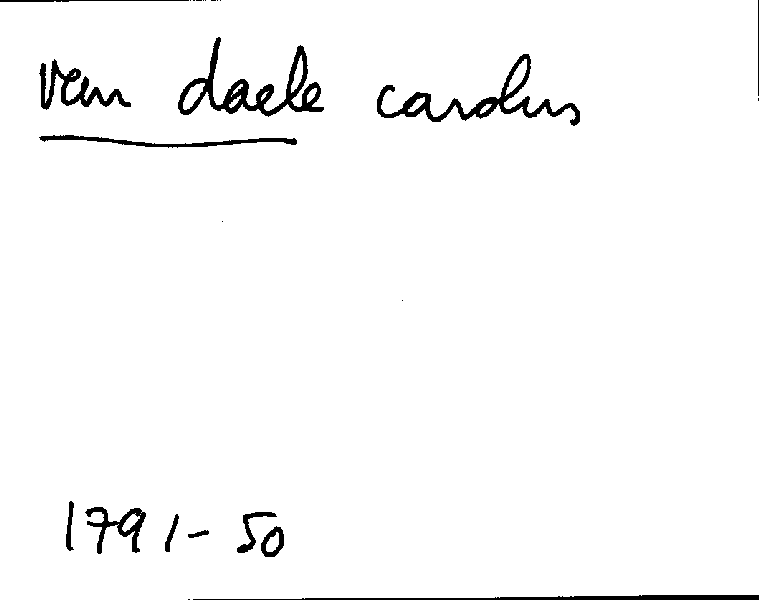 van daele carolus
1791-50